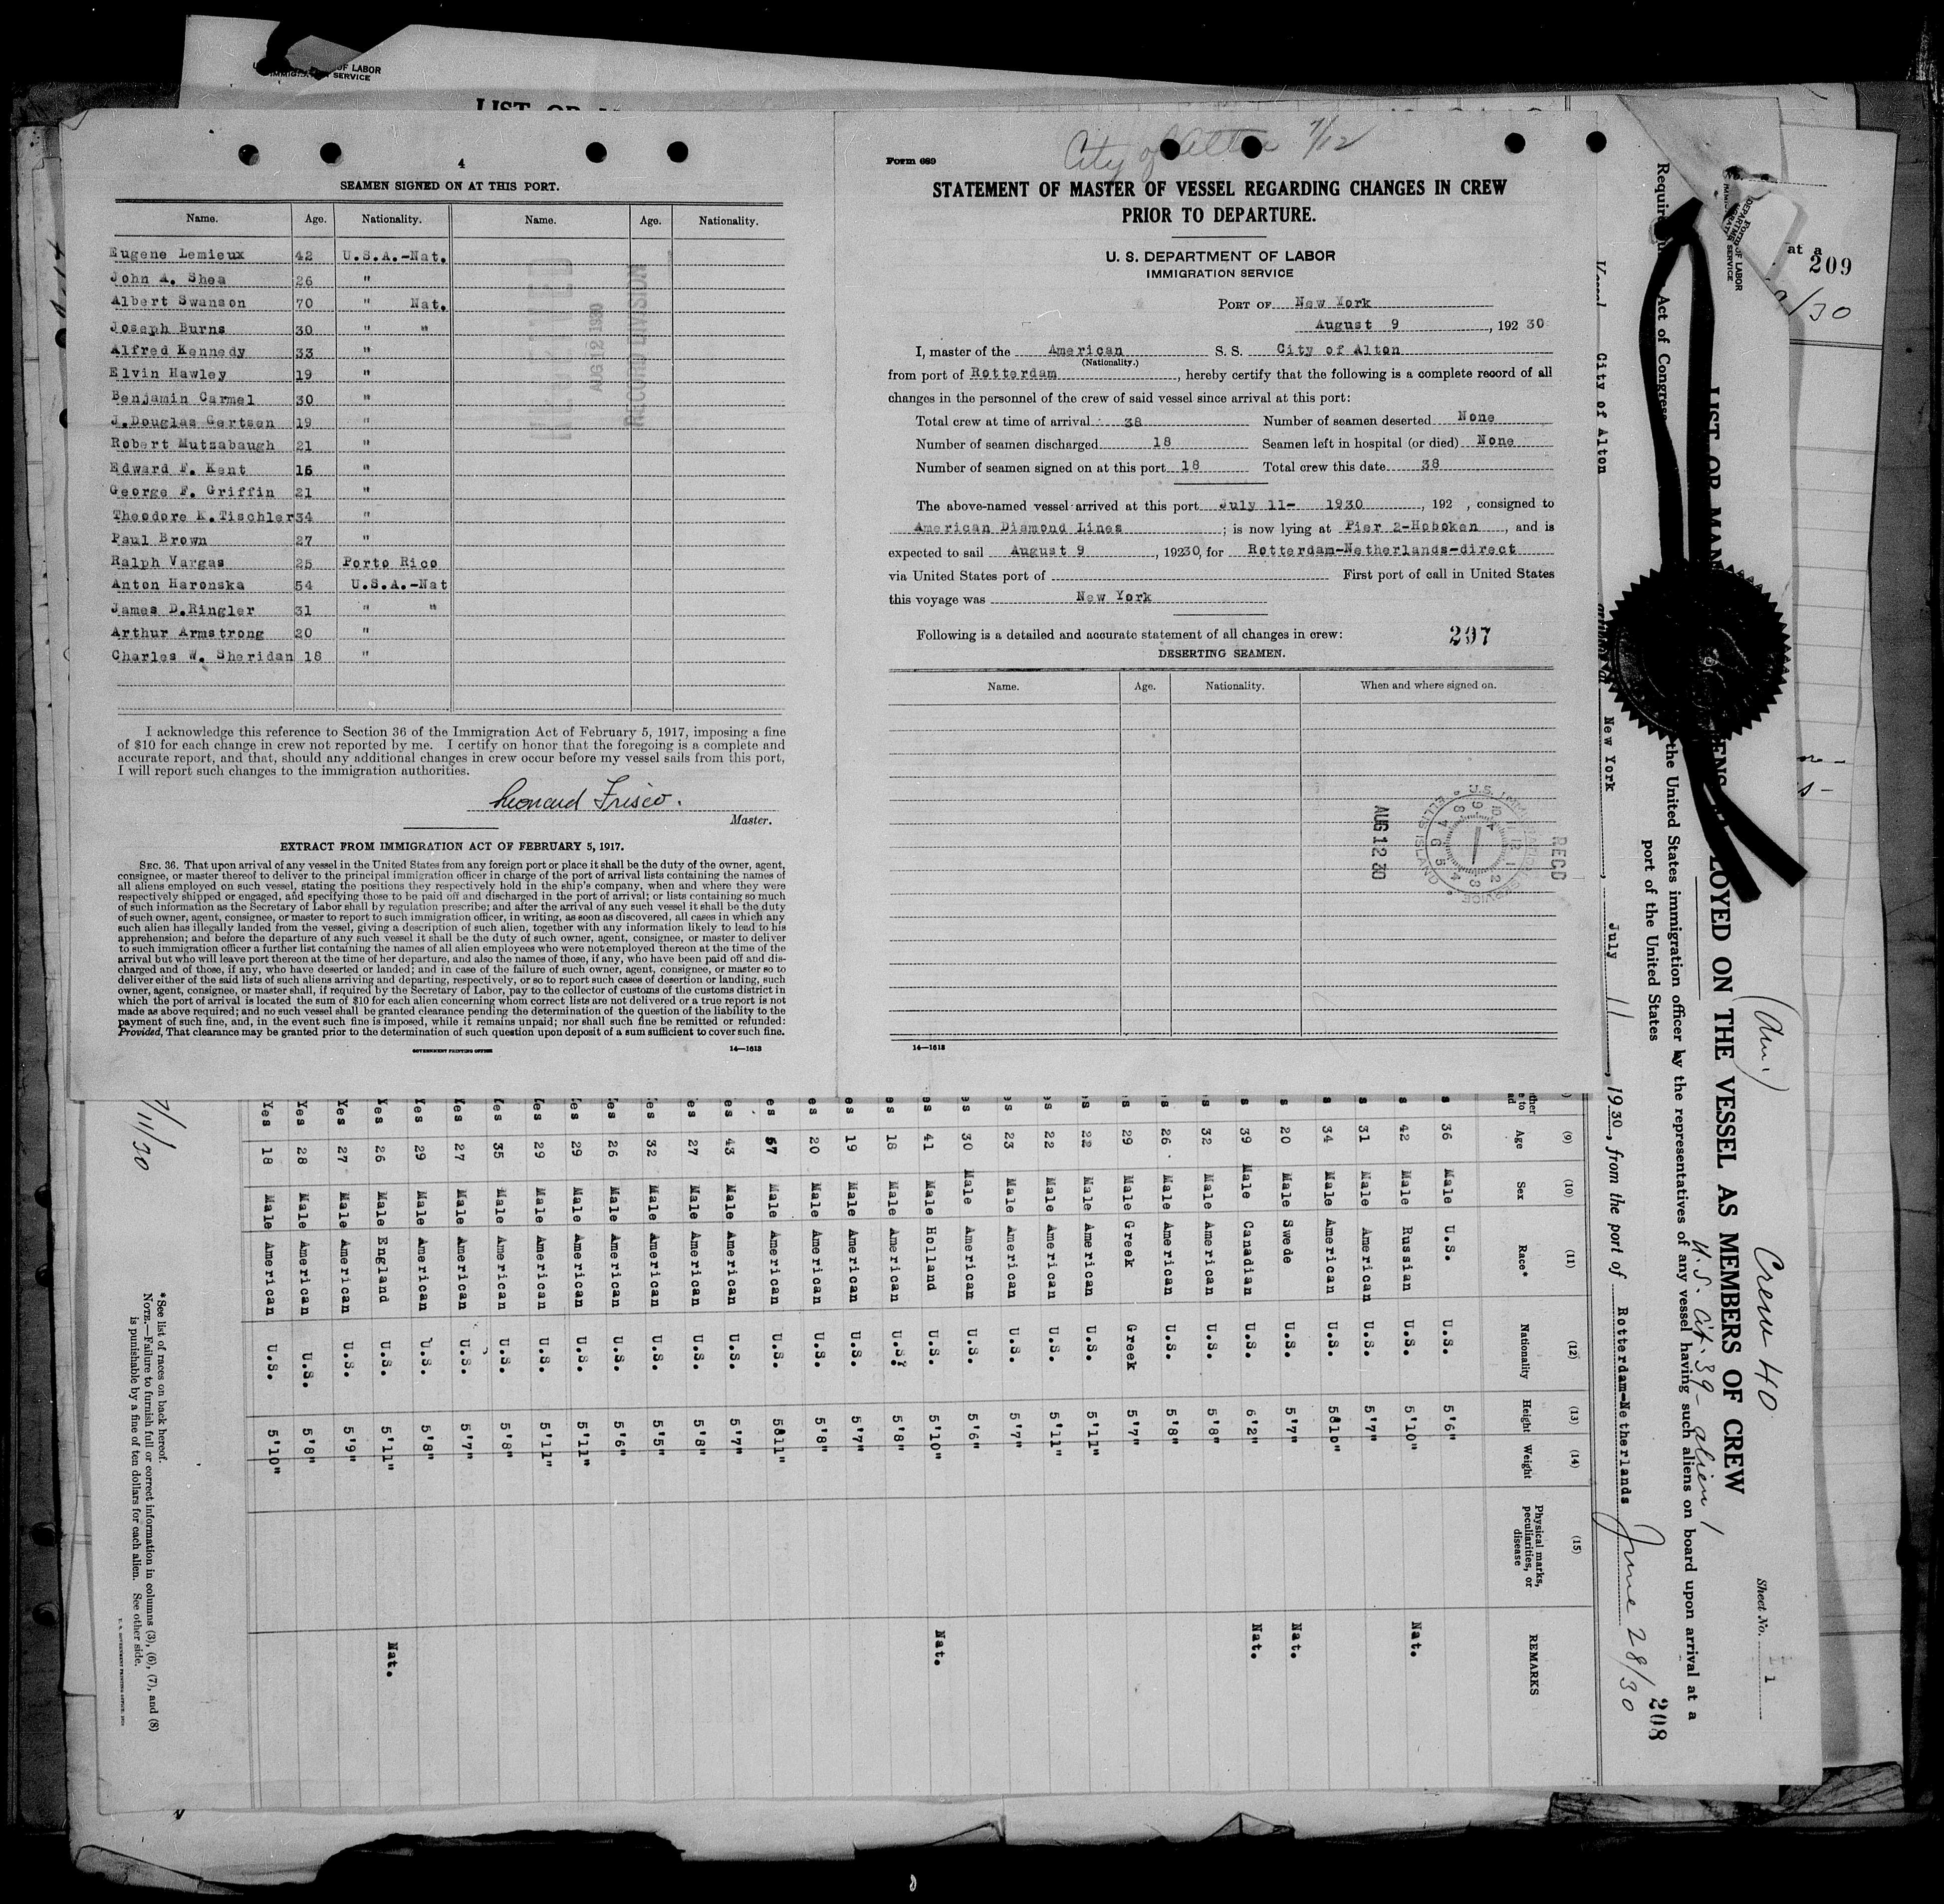 OF LABOR
SERVICE
4
SEAMEN SIGNED ON AT THIS PORT.
Name. Age. Nationality. Name. Age. Nationality.
Eugene Lemieux 42 U.S.A.-Nat.
John A. Shea 26 "
Albert Swanson 70 " Nat.
Joseph Burns 30 " "
Alfred Kennedy 33 "
Elvin Hawley 19 "
Benjamin Carmel 30 "
J.Douglas Gertsen 19 "
Robert Mutzabaugh 21 "
Edward F. Kent 16 "
George F. Griffin 21 "
Theodore K.Tischler 34 "
Paul Brown 27 "
Ralph Vargas 25 Porto Rico
Anton Haronska 54 U.S.A.-Nat
James D.Ringler 31 " "
Arthur Armstrong 20 "
Charles W. Sheridan 18 "
RECEIVED
AUG 12 1930
RECORD DIVISION
I acknowledge this reference to Section 36 of the Immigration Act of February 5, 1917, imposing a fine
of $10 for each change in crew not reported by me. I certify on honor that the foregoing is a complete and
accurate report, and that, should any additional changes in crew occur before my vessel sails from this port,
I will report such changes to the immigration authorities.
Leonard Frisco.
Master.
EXTRACT FROM IMMIGRATION ACT OF FEBRUARY 5, 1917.
SEC. 36. That upon arrival of any vessel in the United States from any foreign port or place it shall be the duty of the owner, agent,
consignee, or master thereof to deliver to the principal immigration officer in charge of the port of arrival lists containing the names of
all aliens employed on such vessel, stating the positions they respectively hold in the ship's company, when and where they were
respectively shipped or engaged, and specifying those to be paid off and discharged in the port of arrival; or lists containing so much
of such information as the Secretary of Labor shall by regulation prescribe; and after the arrival of any such vessel it shall be the duty
of such owner, agent, consignee, or master to report to such immigration officer, in writing, as soon as discovered, all cases in which any
such alien has illegally landed from the vessel, giving a description of such alien, together with any information likely to lead to his
apprehension; and before the departure of any such vessel it shall be the duty of such owner, agent, consignee, or master to deliver
to such immigration officer a further list containing the names of all alien employees who were not employed thereon at the time of the
arrival but who will leave port thereon at the time of her departure, and also the names of those, if any, who have been paid off and dis-
charged and of those, if any, who have deserted or landed; and in case of the failure of such owner, agent, consignee, or master so to
deliver either of the said lists of such aliens arriving and departing, respectively, or so to report such cases of desertion or landing, such
owner, agent, consignee, or master shall, if required by the Secretary of Labor, pay to the collector of customs of the customs district in
which the port of arrival is located the sum of $10 for each alien concerning whom correct lists are not delivered or a true report is not
made as above required; and no such vessel shall be granted clearance pending the determination of the question of the liability to the
payment of such fine, and, in the event such fine is imposed, while it remains unpaid; nor shall such fine be remitted or refunded:
Provided, That clearance may be granted prior to the determination of such question upon deposit of a sum sufficient to cover such fine.
GOVERNMENT PRINTING OFFICE 14—1613
City of Alton 7/12
Form 689
STATEMENT OF MASTER OF VESSEL REGARDING CHANGES IN CREW
PRIOR TO DEPARTURE.
U. S. DEPARTMENT OF LABOR
IMMIGRATION SERVICE
PORT OF New York
August 9, 192 30
I, master of the American S. S. City of Alton
(Nationality.)
from port of Rotterdam, hereby certify that the following is a complete record of all
changes in the personnel of the crew of said vessel since arrival at this port:
Total crew at time of arrival 38 Number of seamen deserted None
Number of seamen discharged 18 Seamen left in hospital (or died) None
Number of seamen signed on at this port 18 Total crew this date 38
The above-named vessel arrived at this port July 11- 1930, 192 , consigned to
American Diamond Lines; is now lying at Pier 2-Hoboken, and is
expected to sail August 9, 19230, for Rotterdam-Netherlands-direct
via United States port of First port of call in United States
this voyage was New York
Following is a detailed and accurate statement of all changes in crew: 207
DESERTING SEAMEN.
Name. Age. Nationality. When and where signed on.
AUG 12 30
U.S. IMMIGRATION SERVICE ELLIS ISLAND
REC'D
14—1613
at a
209
/30
Sheet No. 1
(Am.) Crew 40
LIST OR MAN ENS LOYED ON THE VESSEL AS MEMBERS OF CREW
U.S. Cit. 39 - alien 1
Require Act of Congress the United States immigration officer by the representatives of any vessel having such aliens on board upon arrival at a
port of the United States
208
Vessel City of Alton New York, July 11, 1930, from the port of Rotterdam-Netherlands June 28/30
(9) (10) (11) (12) (13) (14) (15)
Age Sex Race* Nationality Height Weight Physical marks, peculiarities, or disease REMARKS
36 Male U.S. U.S. 5'6"
42 Male Russian U.S. 5'10" Nat.
31 Male American U.S. 5'7"
34 Male American U.S. 5810"
20 Male Swede U.S. 5'7" Nat.
39 Male Canadian U.S. 6'2" Nat.
32 Male American U.S. 5'8"
26 Male American U.S. 5'8"
29 Male Greek Greek 5'7"
22 Male American U.S. 5'11"
22 Male American U.S. 5'11"
23 Male American U.S. 5'7"
30 Male American U.S. 5'6"
41 Male Holland U.S. 5'10" Nat.
18 Male American U.S. 5'8"
19 Male American U.S. 5'7"
20 Male American U.S. 5'8"
57 Male American U.S. 5811"
43 Male American U.S. 5'7"
27 Male American U.S. 5'8"
32 Male American U.S. 5'5"
26 Male American U.S. 5'6"
29 Male American U.S. 5'11"
29 Male American U.S. 5'11"
35 Male American U.S. 5'8"
27 Male American U.S. 5'7"
29 Male American U.S. 5'8"
26 Male England U.S. 5'11" Nat.
Yes 27 Male American U.S. 5'9"
Yes 28 Male American U.S. 5'8"
Yes 18 Male American U.S. 5'10"
7/11/30
*See list of races on back hereof.
NOTE.—Failure to furnish full or correct information in columns (3), (6), (7), and (8)
is punishable by a fine of ten dollars for each alien. See other side.